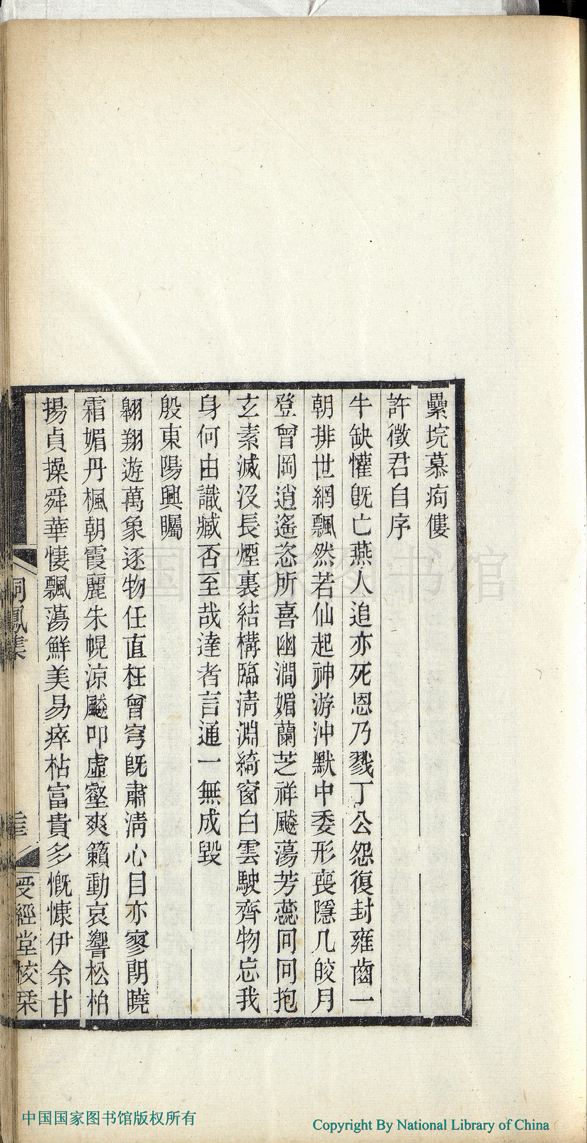 纍垸慕痀僂
許徵君自序
牛缺懽旣亡燕人追亦死恩乃戮丁公怨復封雍齒一
朝排世網飄然若仙起神游沖默中委形喪隱几皎月
登曾岡逍遙恣所喜幽澗媚蘭芝祥飈蕩芳蕊冋冋抱
玄素滅没長煙裏結構臨淸淵綺窗白雲駛齊物忘我
身何由識臧否至哉達者言通一無成毀
殷東陽興矚
翱翔遊萬象逐物任直枉曾穹旣肅淸心目亦寥朗曉
霜媚丹楓朝霞麗朱幌涼飈叩虛壑爽籟動哀響松柏
揚貞操舜華悽飄蕩鮮美易瘁枯富貴多慨慷伊余甘
鳳集
受經堂校栞
中国国家图书馆
中国国家图书馆版权所有
Copyright By National Library of China